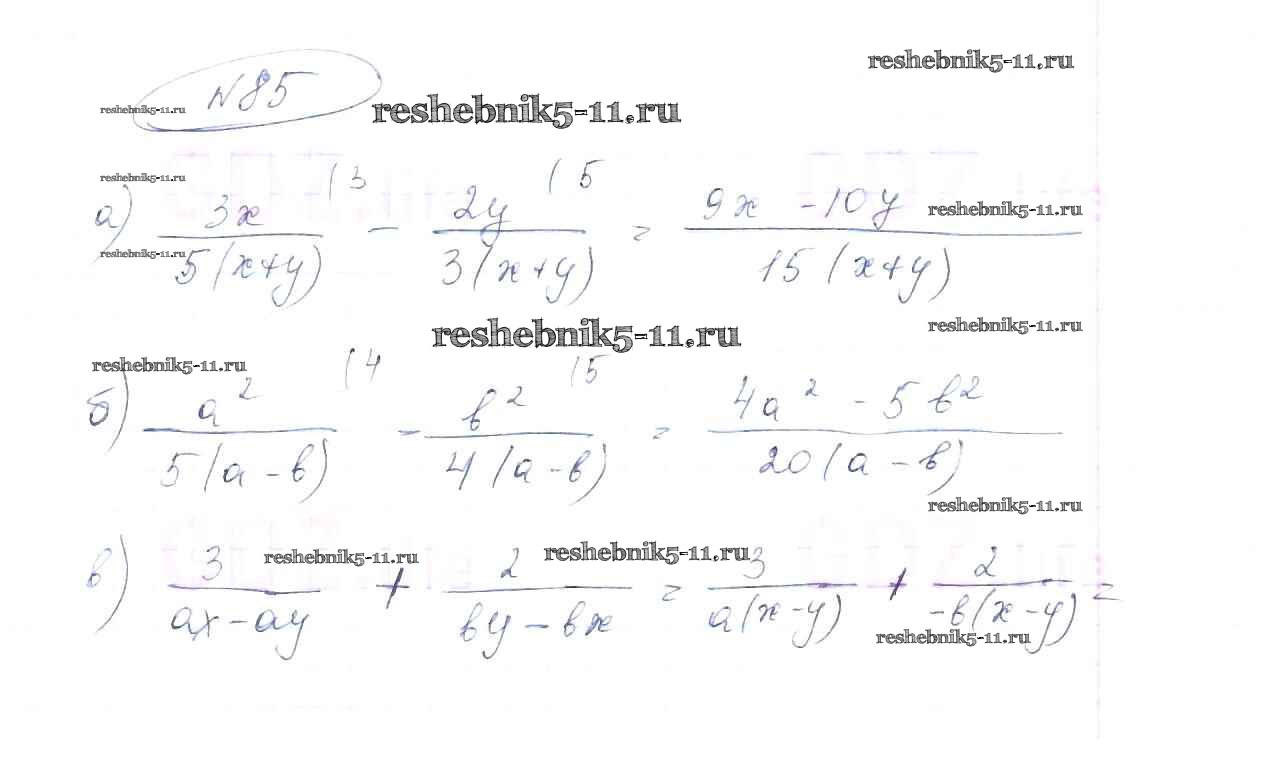 reshebnik5-11.ru
№85
reshebnik5-11.ru
reshebnik5-11.ru
reshebnik5-11.ru
а) 3x/5(x+y) (3 - 2y/3(x+y) (5 = 9x - 10y/15(x+y)
reshebnik5-11.ru
reshebnik5-11.ru
reshebnik5-11.ru
reshebnik5-11.ru
reshebnik5-11.ru
б) a²/5(a-b) (4 - b²/4(a-b) (5 = 4a² - 5b²/20(a-b)
reshebnik5-11.ru
reshebnik5-11.ru
reshebnik5-11.ru
в) 3/ax-ay + 2/by-bx = 3/a(x-y) + 2/-b(x-y) =
reshebnik5-11.ru